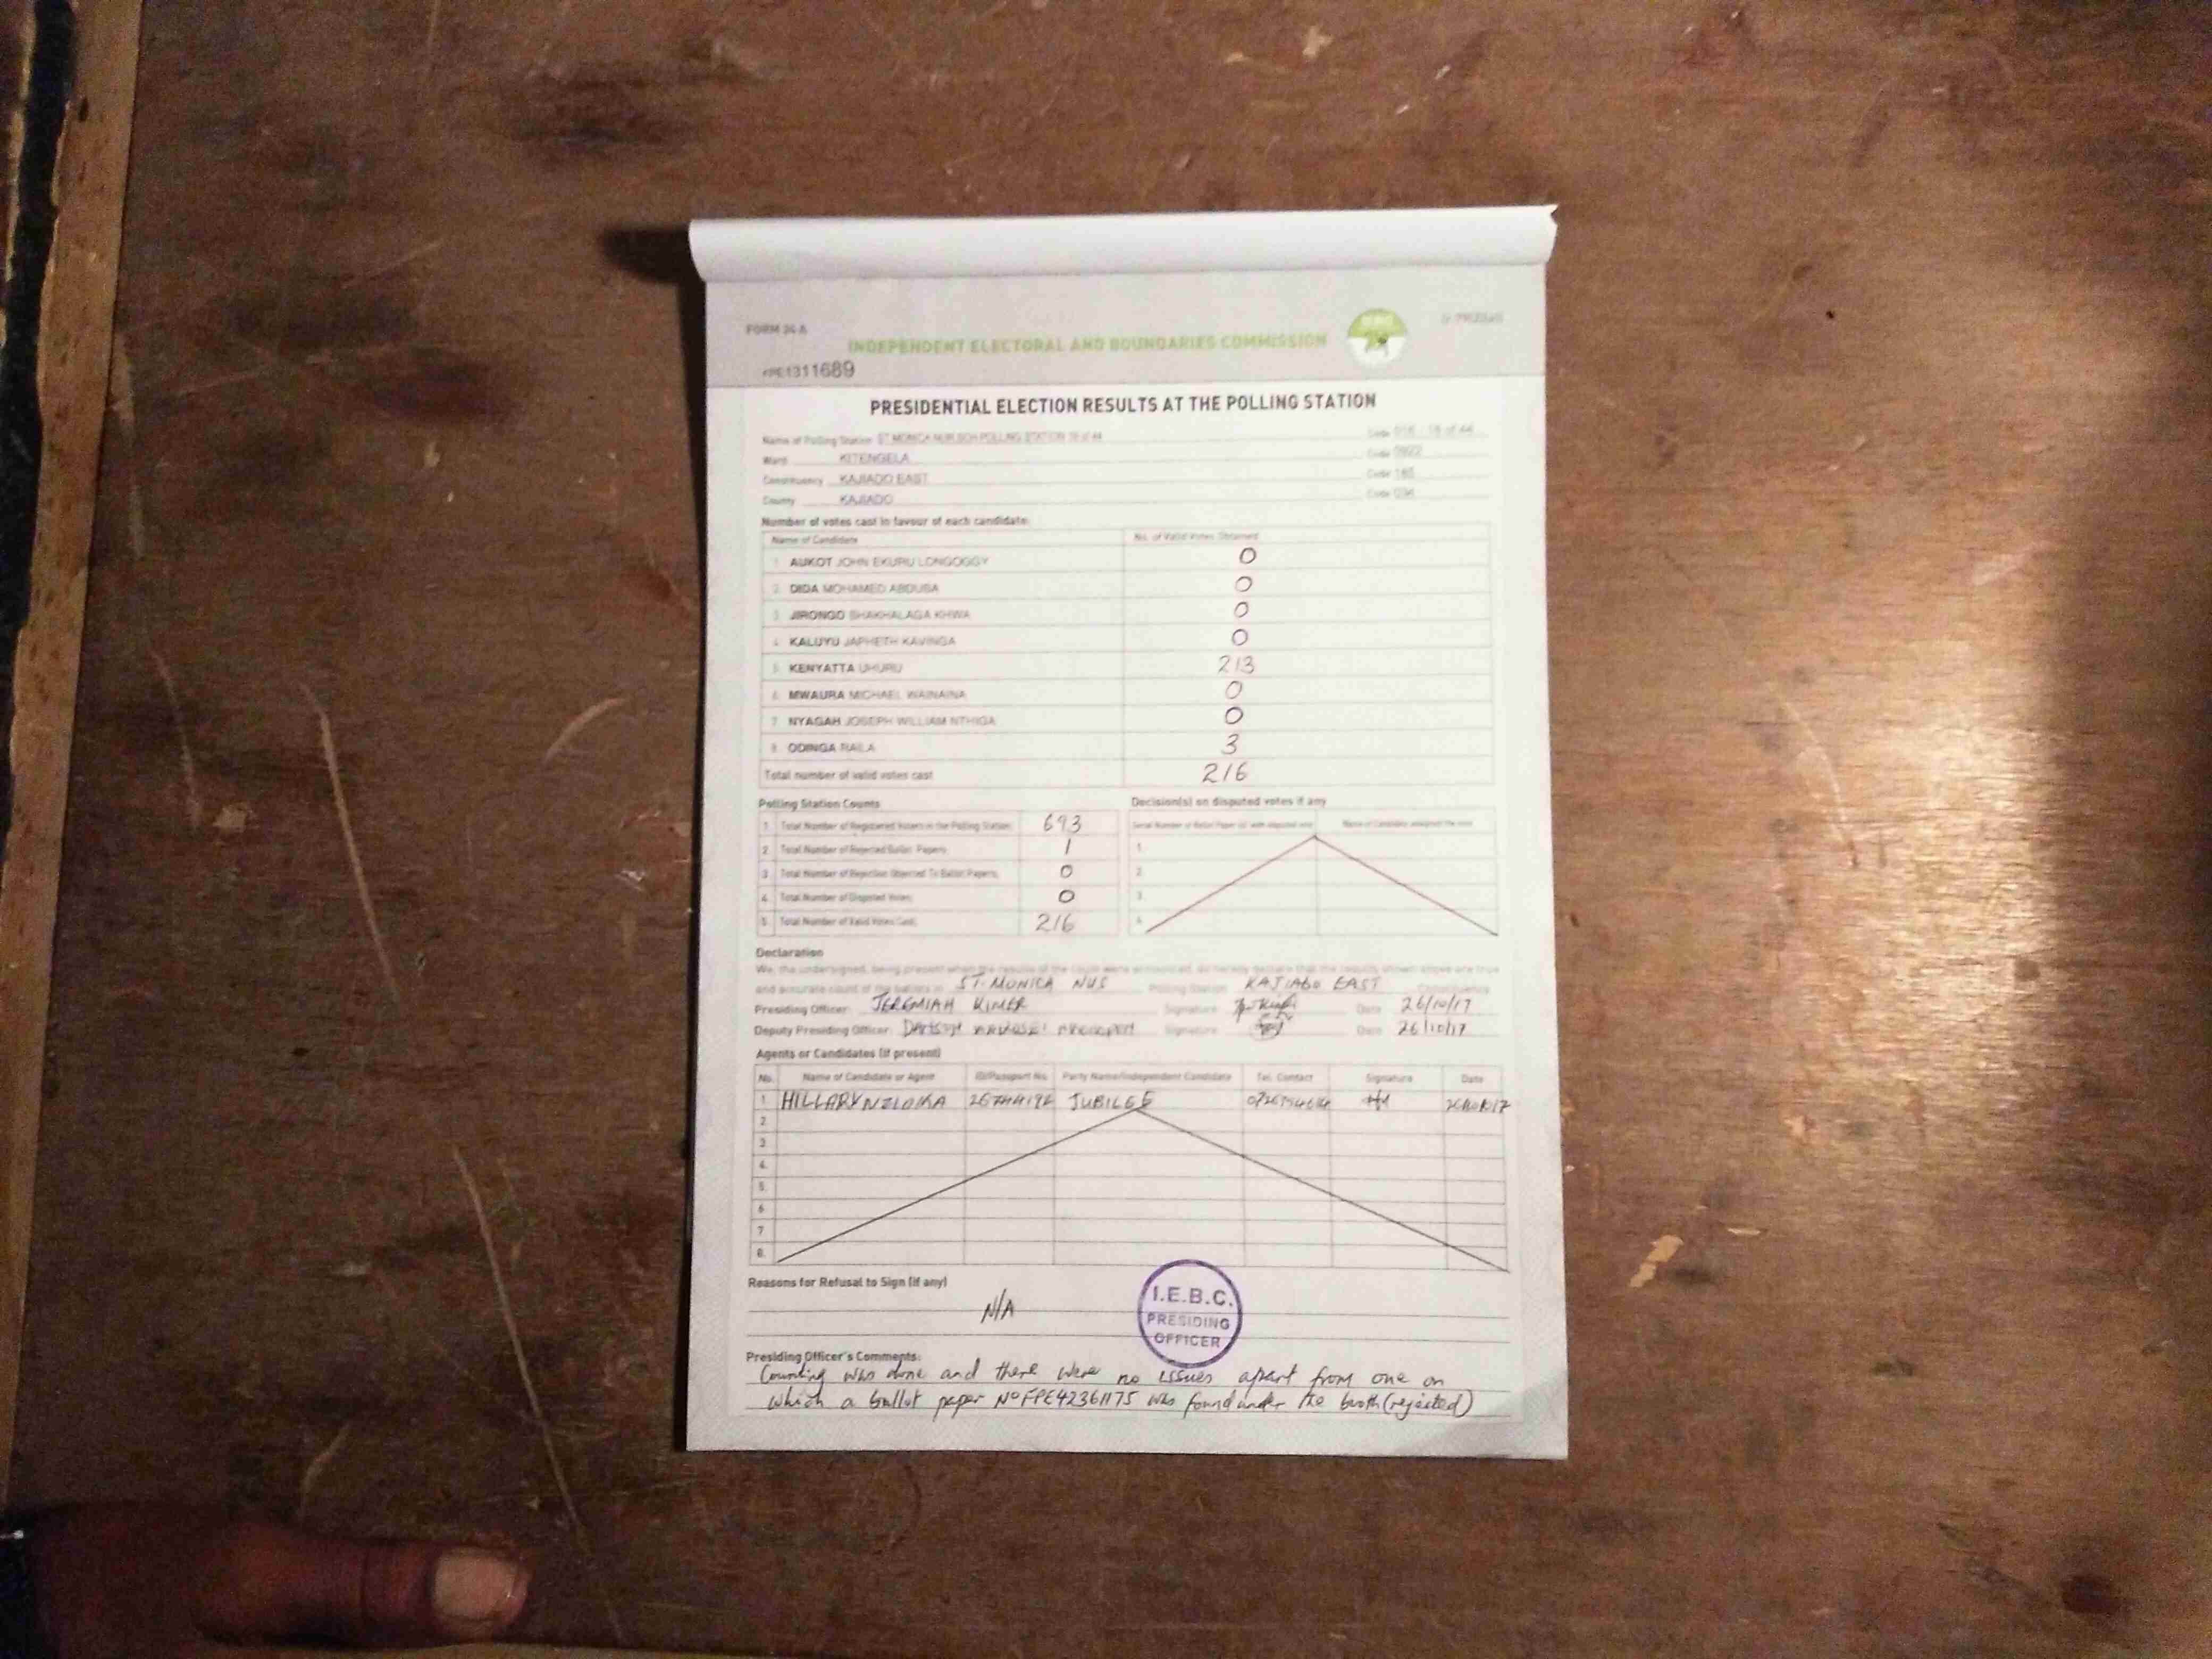 FORM 34 A
INDEPENDENT ELECTORAL AND BOUNDARIES COMMISSION
1311689
PRESIDENTIAL ELECTION RESULTS AT THE POLLING STATION
Name of Polling Station ST MONICA NUR SCH POLLING STATION of 44 Code of 44
Ward KITENGELA Code
Constituency KAJIADO EAST Code
County KAJIADO Code 034
Number of votes cast in favour of each candidate:
Name of Candidate No. of Valid Votes Obtained
1. AUKOT JOHN EKURU LONGOGGY 0
2. DIDA MOHAMED ABDUBA 0
3. JIRONGO SHAKHALAGA KHWA 0
4. KALUYU JAPHETH KAVINGA 0
5. KENYATTA UHURU 213
6. MWAURA MICHAEL WAINAINA 0
7. NYAGAH JOSEPH WILLIAM NTHIGA 0
8. ODINGA RAILA 3
Total number of valid votes cast 216
Polling Station Counts Decision(s) on disputed votes if any
1. Total Number of Registered Voters in the Polling Station 693
2. Total Number of Rejected Ballot Papers 1
3. Total Number of Rejection Objected To Ballot Papers 0
4. Total Number of Disputed Votes 0
5. Total Number of Valid Votes Cast 216
1.
2.
3.
4.
Declaration
We, the undersigned, being present when the results of the count were announced, do hereby declare that the results shown above are true
and accurate count of the ballots in ST. MONICA NUS Polling Station KAJIADO EAST Constituency
Presiding Officer: JEREMIAH KIMER Signature Date 26/10/17
Deputy Presiding Officer: Signature Date 26/10/17
Agents or Candidates (if present)
No. Name of Candidate or Agent ID/Passport No. Party Name/Independent Candidate Tel. Contact Signature Date
1 HILLARY JUBILEE
2
3
4
5
6
7
8
Reasons for Refusal to Sign (if any)
N/A
I.E.B.C.
PRESIDING
OFFICER
Presiding Officer's Comments:
Counting was done and there were no issues apart from one on
which a ballot paper No FPE42361175 was found under the booth (rejected)